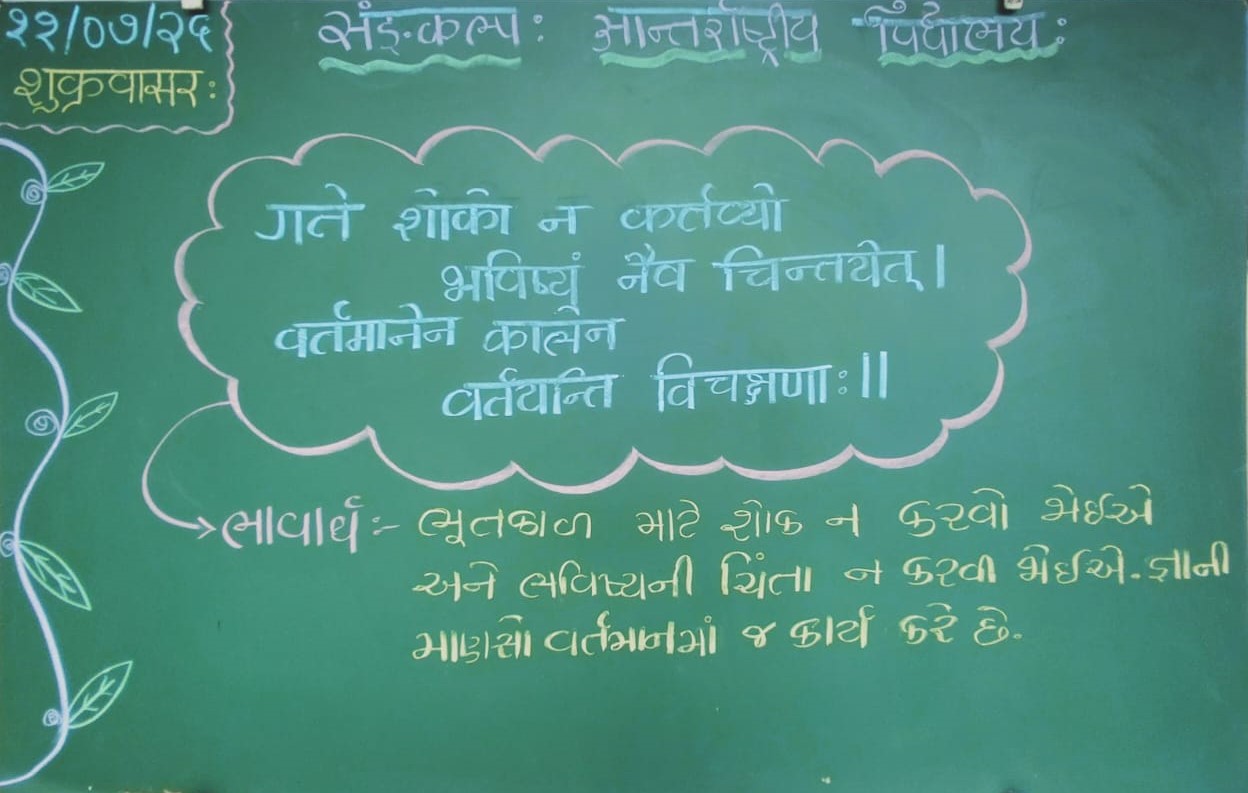 ११/०७/२५
शुक्रवासरः
संङ्कल्पः आन्तर्राष्ट्रीय विद्यालयः
गते शोको न कर्तव्यो
भविष्यं नैव चिन्तयेत्।
वर्तमानेन कालेन
वर्तयन्ति विचक्षणाः॥
ભાવાર્થ :- ભૂતકાળ માટે શોક ન કરવો જોઈએ
અને ભવિષ્યની ચિંતા ન કરવી જોઈએ. જ્ઞાની
માણસો વર્તમાનમાં જ કાર્ય કરે છે.